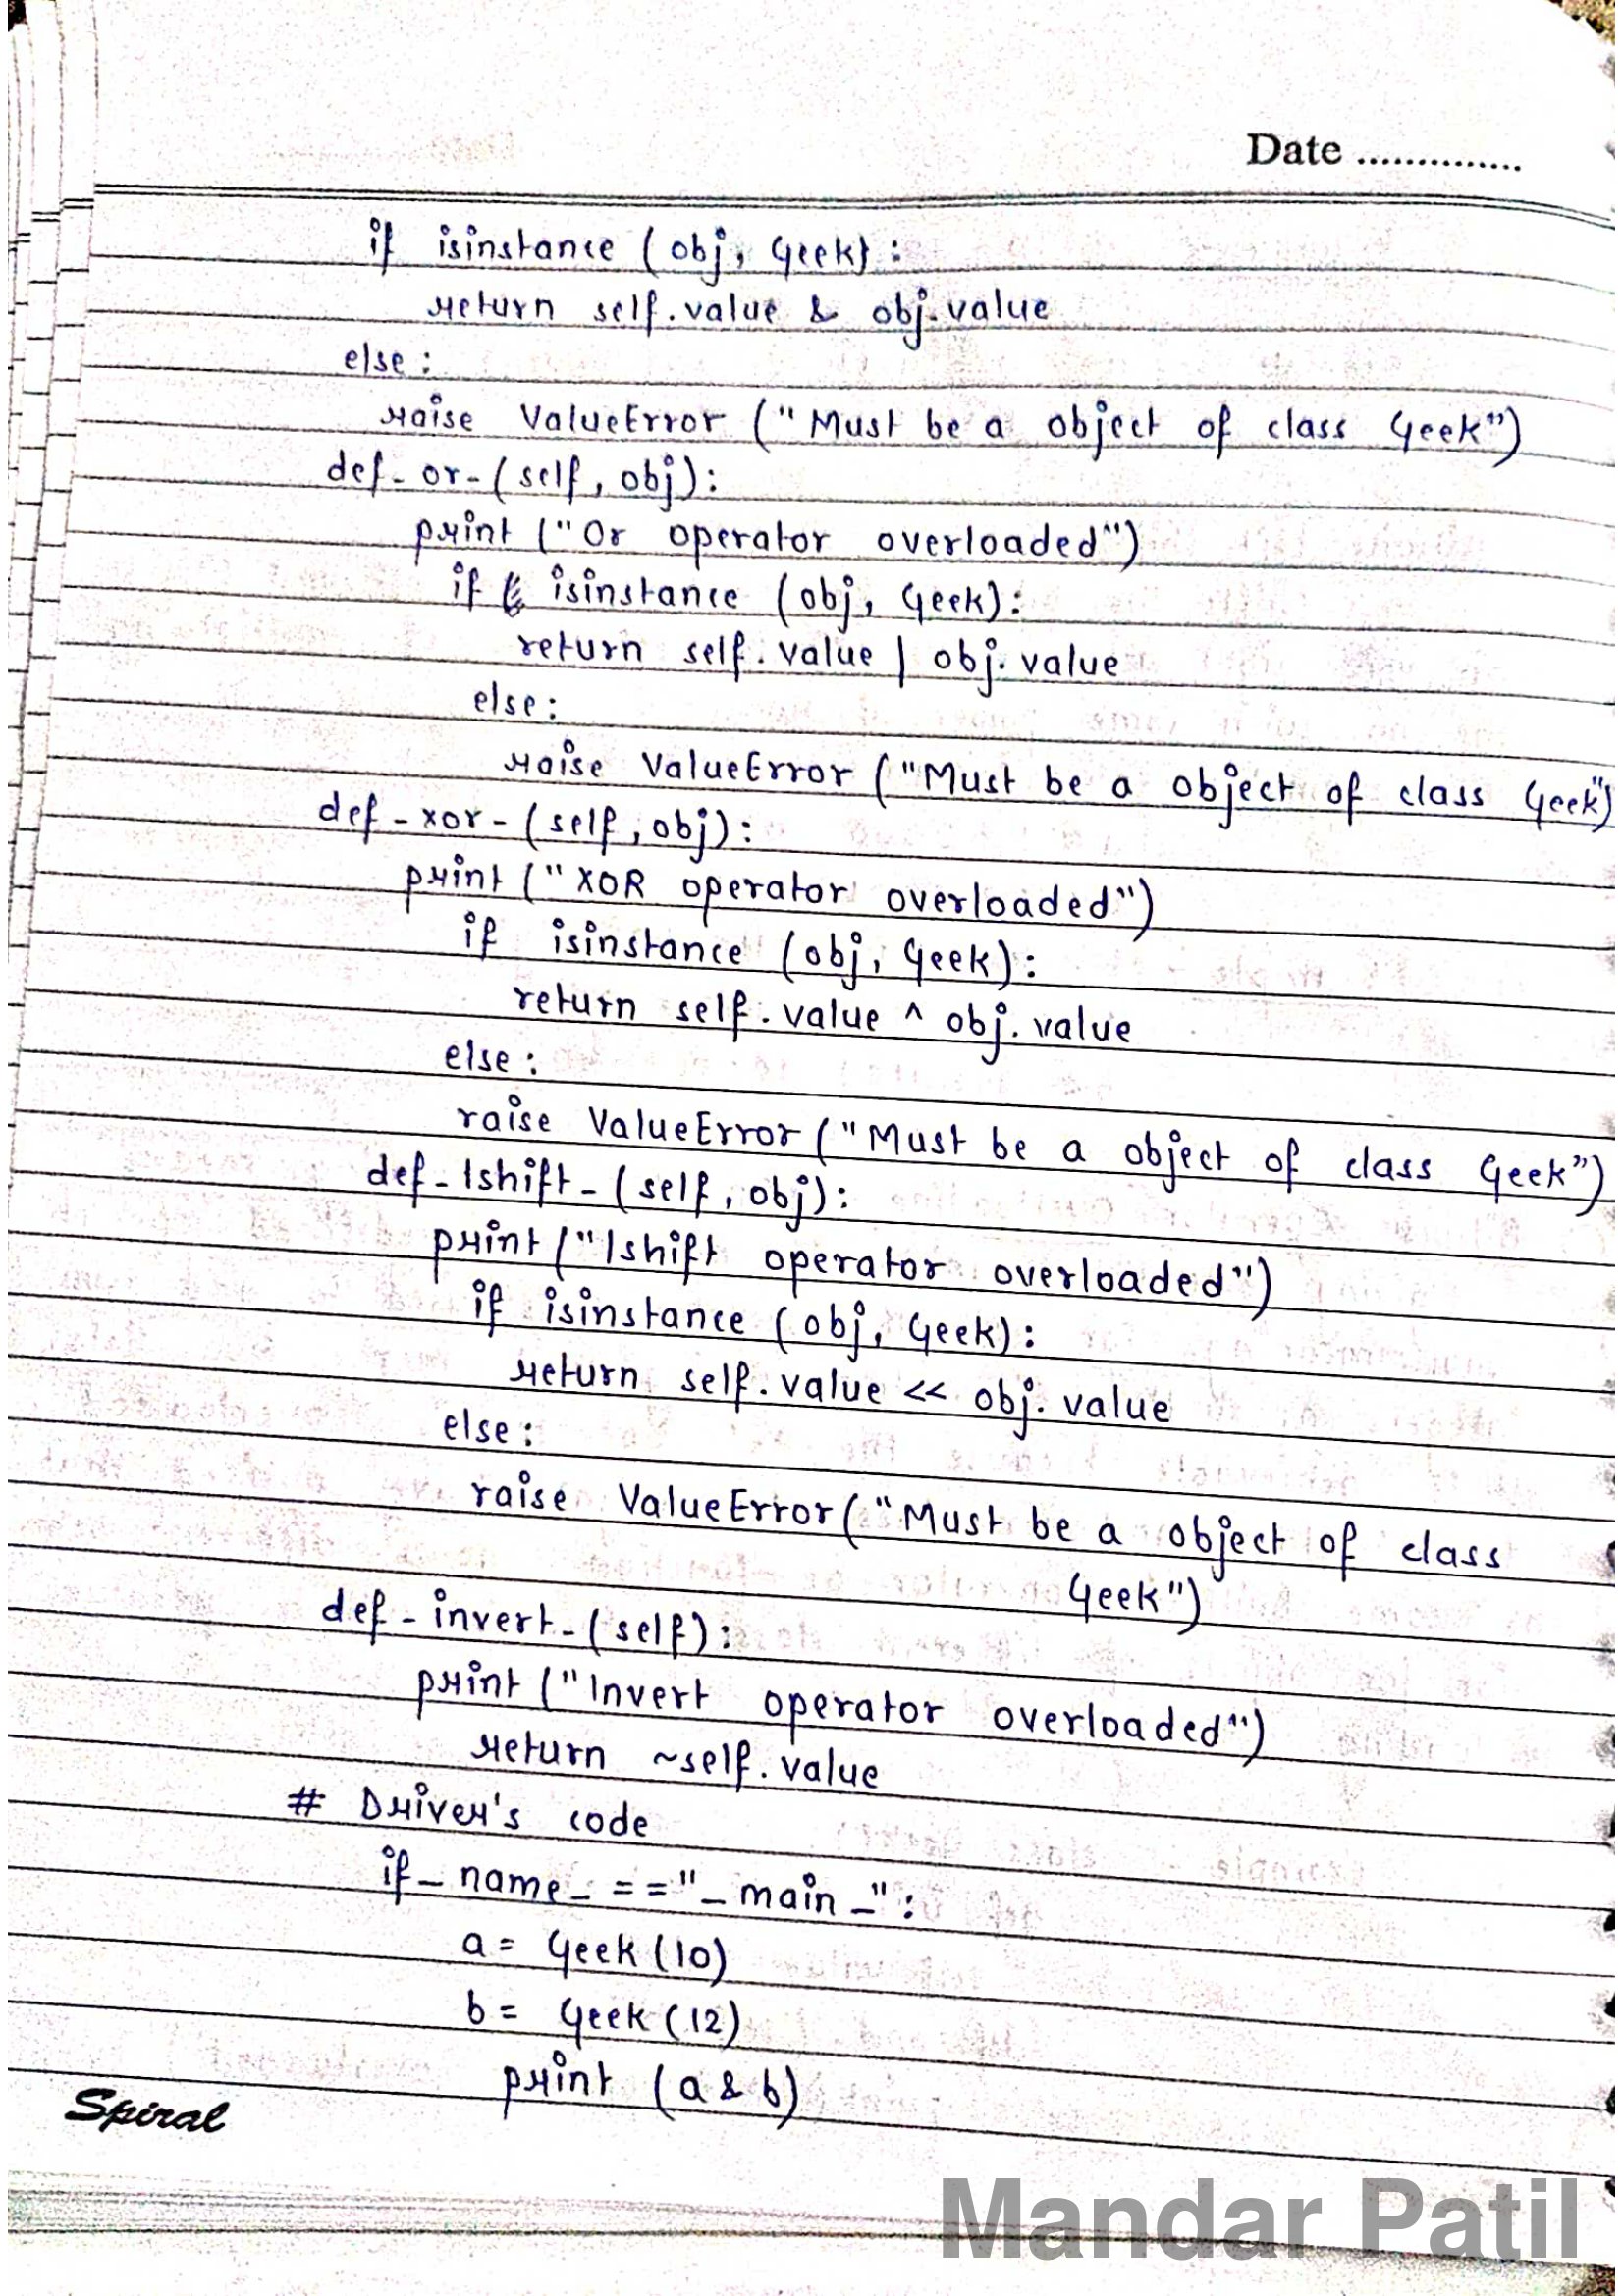 Date ...............
if isinstance (obj, Geek) :
return self.value & obj.value
else :
raise ValueError ("Must be a object of class Geek")
def _ or _ (self, obj) :
print ("Or operator overloaded")
if isinstance (obj, Geek) :
return self. value | obj. value
else :
raise ValueError ("Must be a object of class Geek")
def _ xor _ (self, obj) :
print ("XOR operator overloaded")
if isinstance (obj, Geek) :
return self. value ^ obj. value
else :
raise ValueError ("Must be a object of class Geek")
def _ lshift _ (self, obj) :
print ("lshift operator overloaded")
if isinstance (obj, Geek) :
return self. value << obj. value
else :
raise ValueError ("Must be a object of class
Geek")
def _ invert _ (self) :
print ("Invert operator overloaded")
return ~self. value
# Driver's code
if _ name _ == "_ main _" :
a = Geek (10)
b = Geek (12)
print (a & b)
Spiral
Mandar Patil